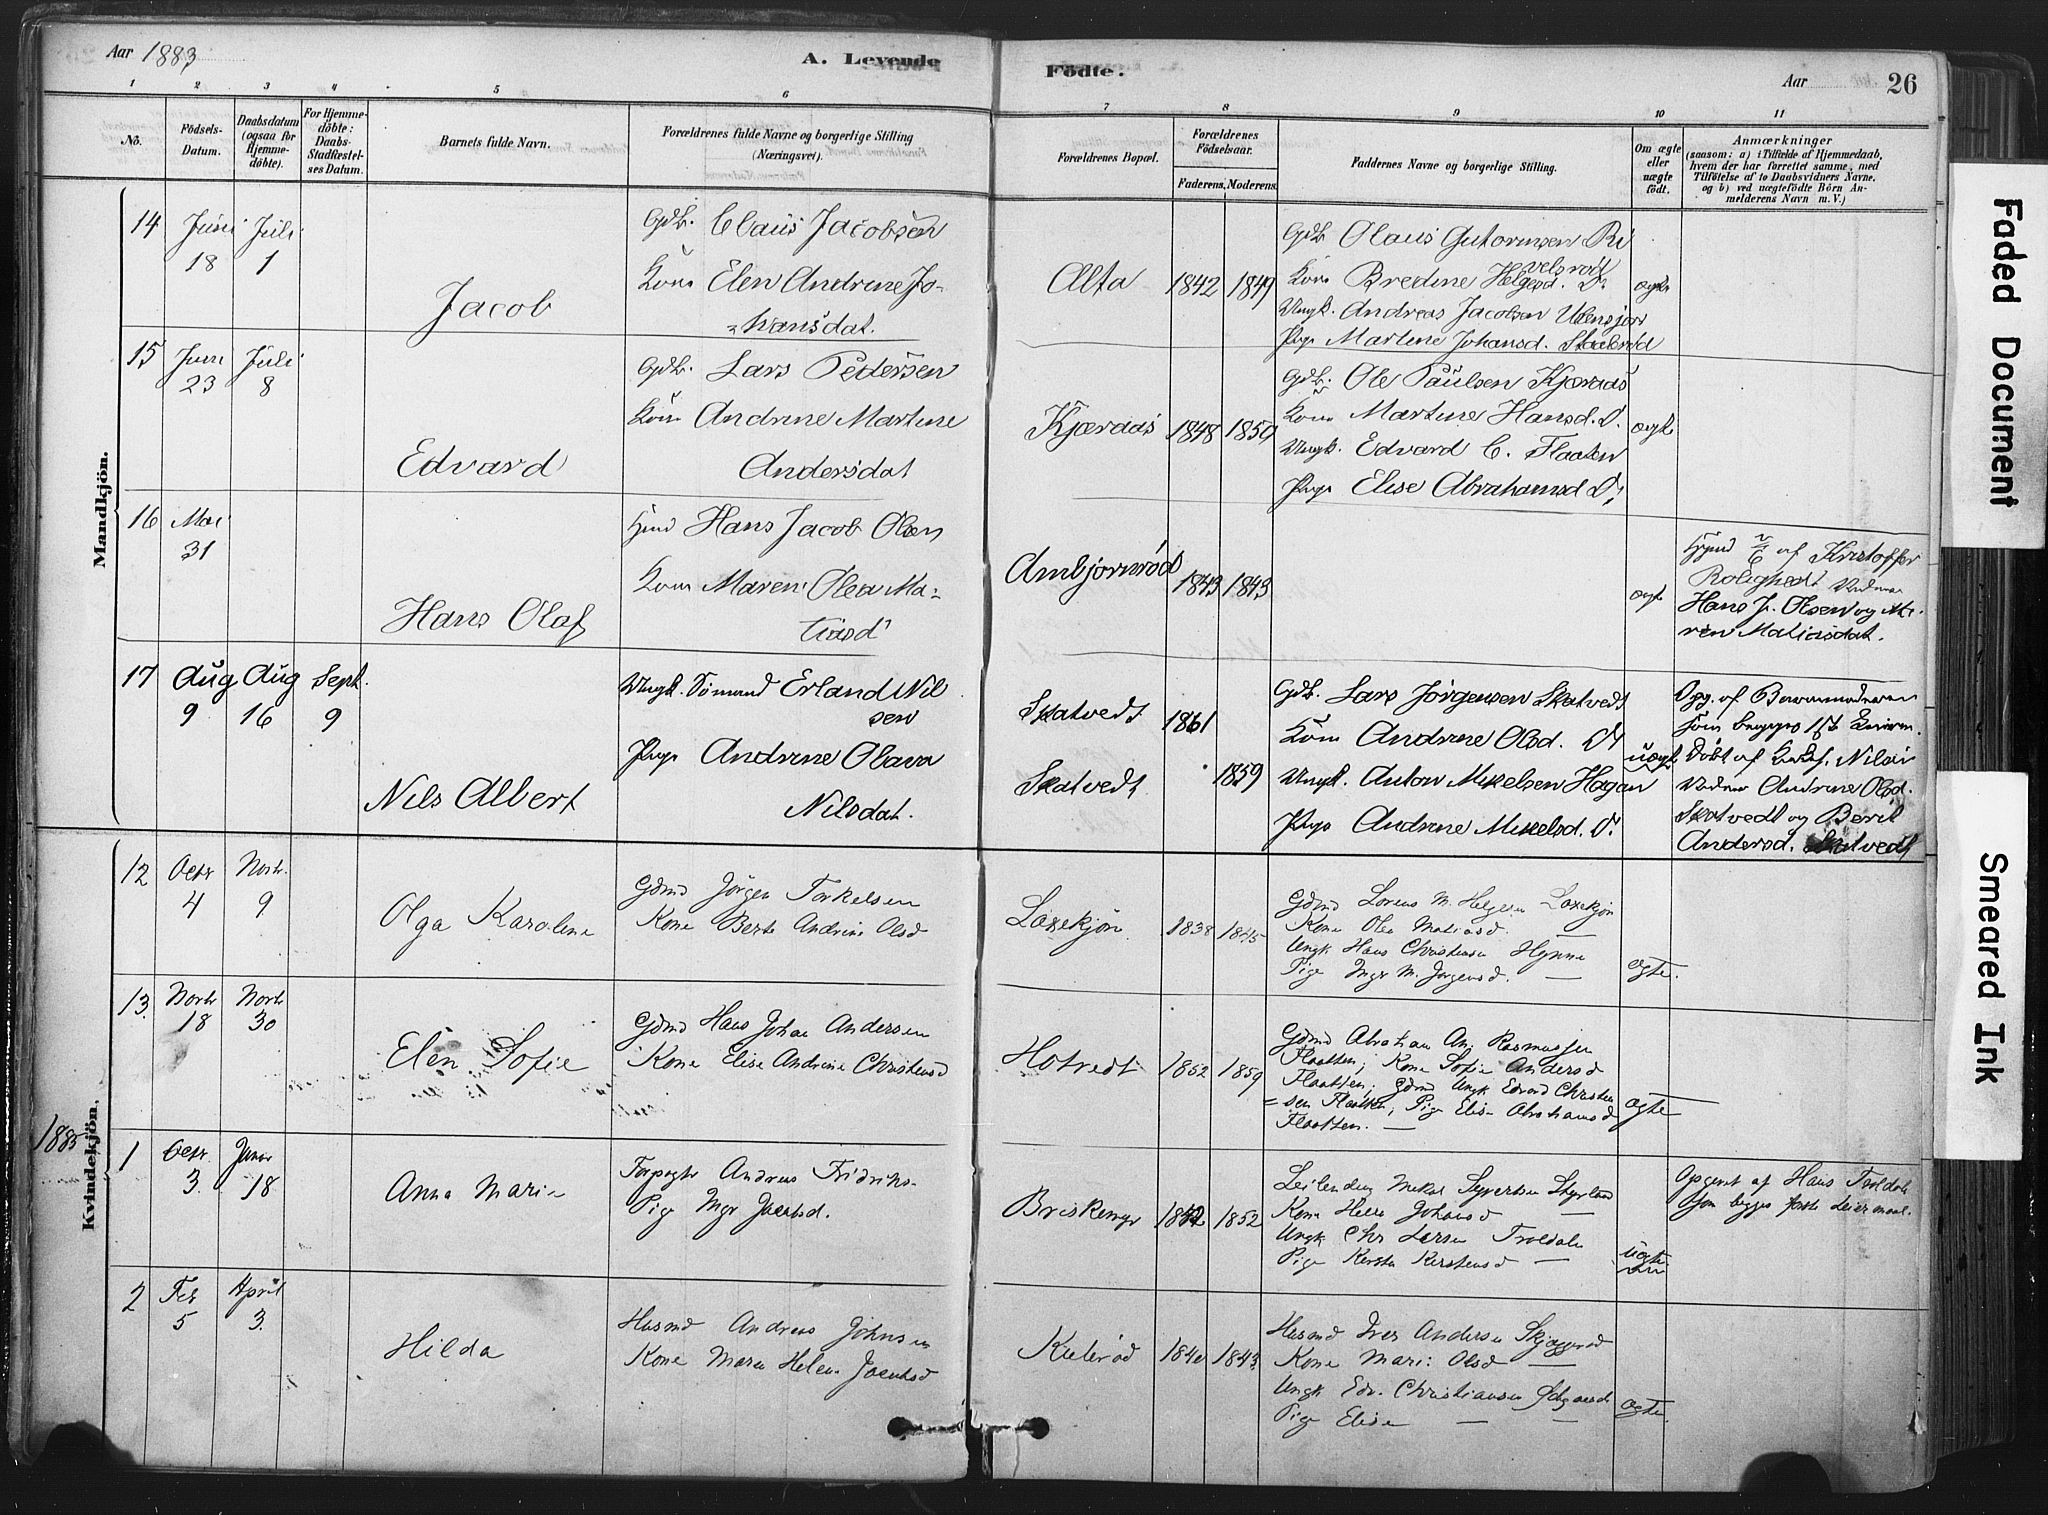 Aar 1883
A. Levende
Födte.
Aar
26
1 2 3 4 5 6 7 8 9 10 11
No.
Födsels-
Datum.
Daabsdatum
(ogsaa for
Hjemme-
döbte).
For Hjemme-
döbte:
Daabs-
Stadfæstel-
ses Datum.
Barnets fulde Navn.
Forældrenes fulde Navne og borgerlige Stilling
(Næringsvei).
Forældrenes Bopæl.
Forældrenes
Födselsaar.
Faderens. Moderens.
Faddernes Navne og borgerlige Stilling.
Om ægte
eller
uægte
födt.
Anmærkninger
(saasom: a) i Tilfælde af Hjemmedaab,
hvem der har forrettet samme, med
Tilföielse af to Daabsvidners Navne,
og b) ved uægtefödte Börn An-
melderens Navn m. V.)
Mandkjön.
14
Juni
18
Juli
1
Jacob
Gdb. Claus Jacobsen
Kone Elen Andrine Jo-
hansdat.
Alta
1842 1849
Gdb Olaus Gutormsen Ri
velsrød
Kone Bredine Helgesd. D.
Ungk. Andreas Jacobsen
Pige Martine Johansd.
ægte
15
Juni
23
Juli
8
Edvard
Gdb. Lars Pedersen
Kone Andrine Martine
Andersdat
Kjæraas
1848 1850
Gdb. Ole Paulsen Kjæraas
Kone Martine Hansd. D.
Ungk. Edvard C. Flaaten
Pige Elise Abrahamsd D.
ægte
16
Mai
31
Hans Olaf
Hans Jacob Olsen
Kone Maren Olea Ma-
tiasd
Ambjørnrød
1843 1843
ægte
af Kristoffer
Rolighedt
Hans J. Olsen og Ma-
ren Matiasdat.
17
Aug
9
Aug
16
Sept.
9
Nils Albert
Ungk. Sømand Erland Nil
sen
Pige Andrine Olava
Nilsdat.
Skatvedt 1861
Skatvedt 1859
Gdb. Lars Jørgensen Skatvedt
Kone Andrine Olsd. D
Ungk. Anton Mikelsen Hagan
Pige Andrine Mikelsd. D.
uægte
Opg. af Barnemoderen
som begges 1ste
Døbt af
Andrine Olsd.
Skatvedt og Berit
Andersd. Skatvedt
Kvindekjön.
12
Octr
4
Novbr.
9
Olga Karoline
Gdmd Jørgen Torkelsen
Kone Berte Andrine Olsd
Laxekjøn
1838 1845
Gdmd Lorens M. Helgesen Laxekjøn
Kone Olea Matiasd.
Ungk Hans Christensen
Pige Ingr M. Jørgensd. —
ægte.
13.
Novbr
18
Novbr
30
Elen Sofie
Gdmd Hans Johan Andersen
Kone Elise Andrine Christensd
Hotvedt
1852 1859
Gdmd Abraham An. Rasmussen
Flaatten; Kone Sofie Andersd
Flaatten; Gdmd Ungk Edvard Christen
=sen Flaatten; Pige Elise Abrahamsd
Flaatten. —
ægte
1885
1
Octr.
3.
Januar
18
Anna Marie
Andreas Fridriks.
Pige Ingr Jacobsd.
Briskemyr
1842 1852
Kone Helle Johansd —
Ungk Chr Larsen Troldale
Pige Kersten Kerstensd —
uægte
Opgivet af Hans Troldale
Som begges første Leiermaal.
2
Feb
5
April
3.
Hilda
Husmd Andreas Johnsen
Kone Maren Helene Jacobsd
Kulerød
1840 1843.
Husmd Iver Andersen
Kone Marie Olsd —
Ungk Edv. Christiansen
Pige Elise — —
ægte.
Faded Document
Smeared Ink